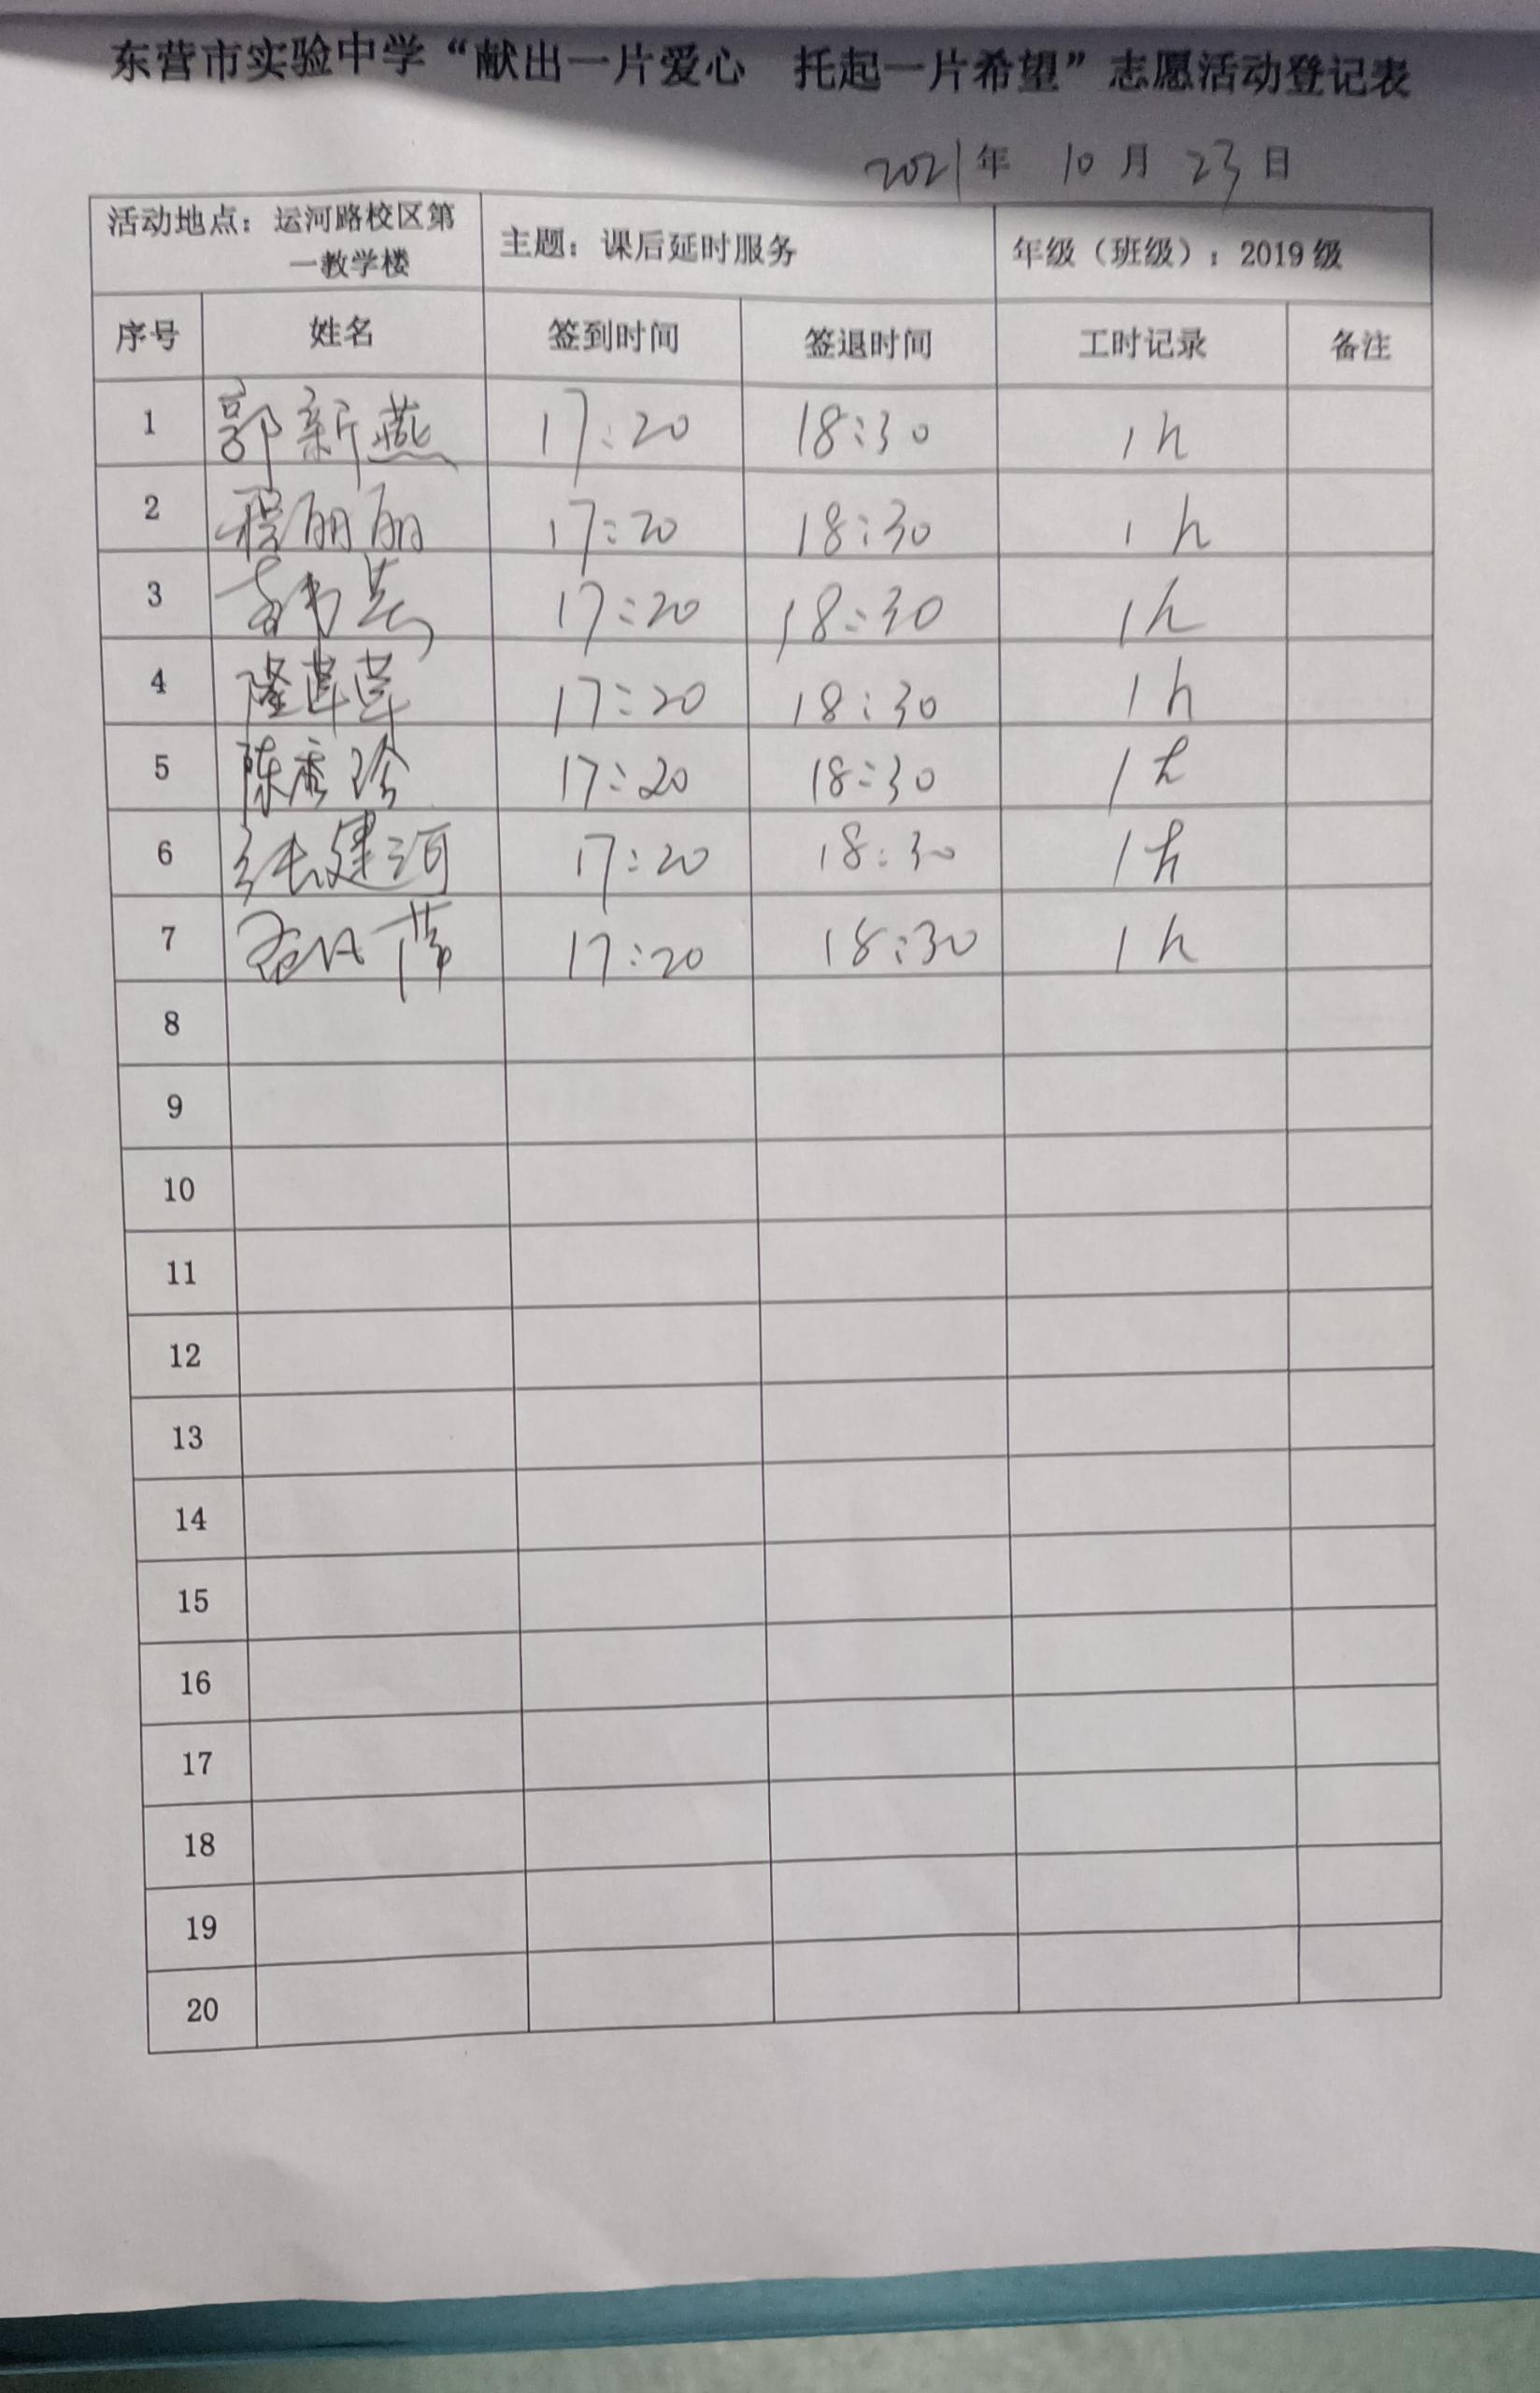 东营市实验中学“献出一片爱心　托起一片希望”志愿活动登记表
2021年 10月 23日
活动地点：运河路校区第一教学楼 主题：课后延时服务 年级（班级）：2019级
序号 姓名 签到时间 签退时间 工时记录 备注
1 郭新燕 17:20 18:30 1h
2 程丽丽 17:20 18:30 1h
3 17:20 18:30 1h
4 隆莲莲 17:20 18:30 1h
5 陈秀玲 17:20 18:30 1h
6 张建河 17:20 18:30 1h
7 17:20 18:30 1h
8
9
10
11
12
13
14
15
16
17
18
19
20